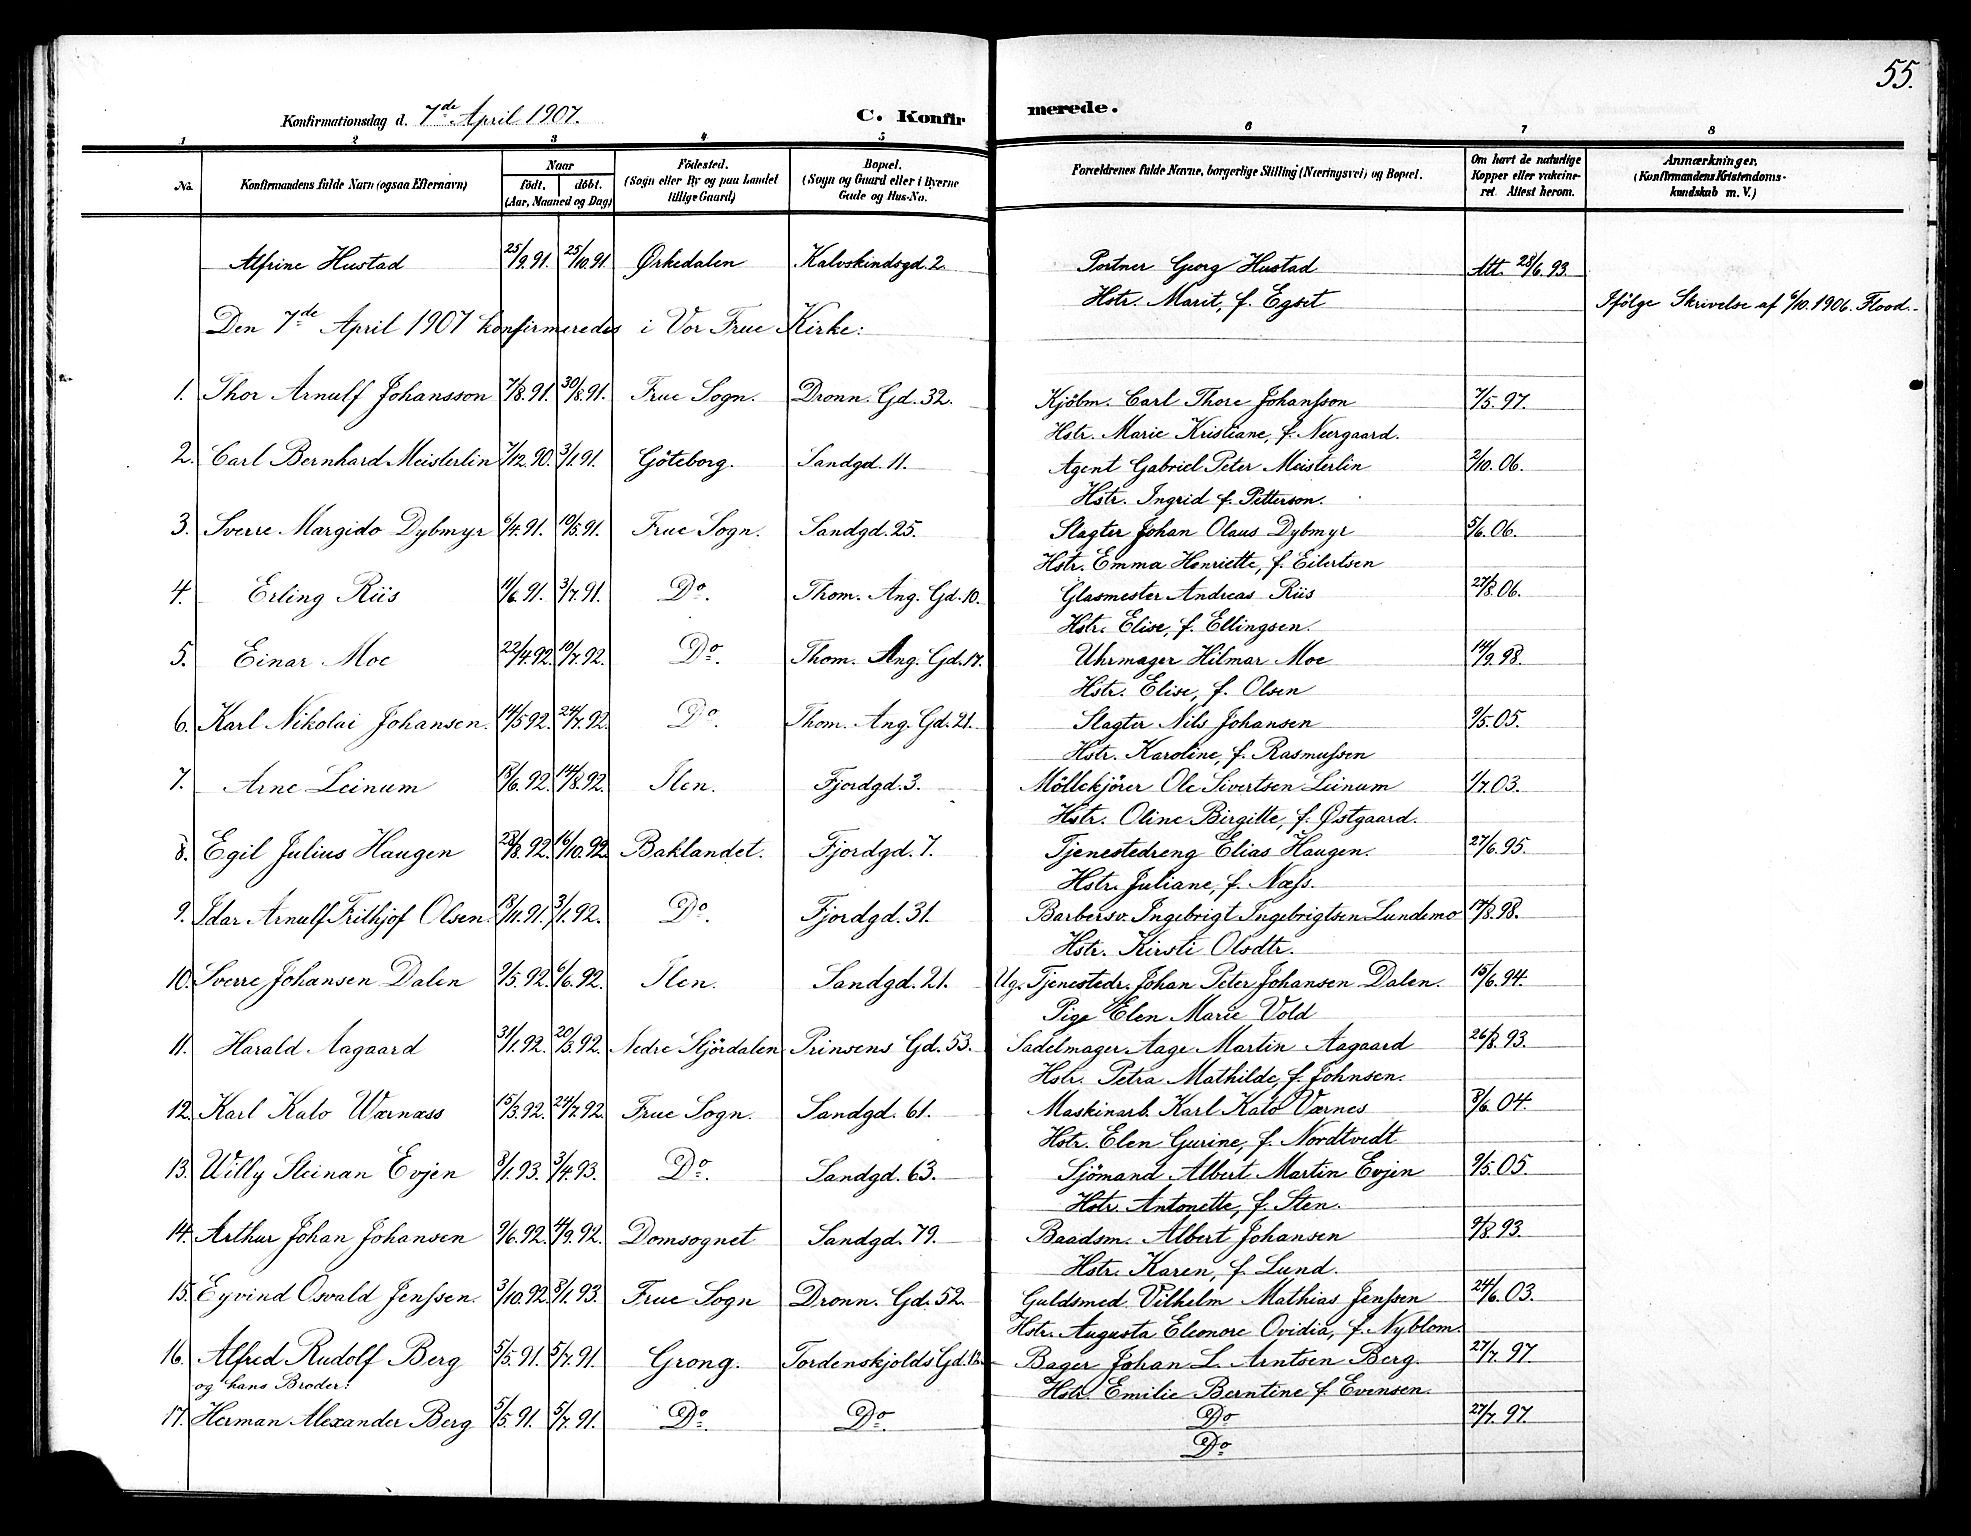 55.
Konfirmationsdag d. 7de April 1907. C. Konfirmerede.
1 2 3 4 5 6 7 8
No. Konfirmandens fulde Navn (ogsaa Efternavn) Naar født, døbt. (Aar, Maaned og Dag) Fødested. (Sogn eller By og paa Landet tillige Gaard) Bopæl. (Sogn og Gaard eller i Byerne Gade og Hus-No. Forældrenes fulde Navne, borgerlige Stilling (Næringsvei) og Bopæl. Om havt de naturlige Kopper eller vakcineret. Attest herom. Anmærkninger. (Konfirmandens Kristendomskundskab m. V.)
Alfrine Hustad 25/9.91. 25/10.91 Ørkedalen Kalvskindsgd. 2. Portner Georg Hustad Att. 28/6.93.
Hstr. Marit, f. Egset Ifölge Skrivelse af 6/10.1906. Flood.
Den 7de April 1907 konfirmeredes i Vor Frue Kirke:
1. Thor Arnulf Johansson 7/8.91. 30/8.91. Frue Sogn. Dronn. Gd. 32. Kjöbm. Carl Thore Johansson 7/5.97.
Hstr. Marie Kristiane, f. Neergaard.
2. Carl Bernhard Meisterlin 7/12.90. 3/1.91. Göteborg. Sandgd. 11. Agent Gabriel Peter Meisterlin 2/10.06.
Hstr. Ingrid f. Petterson.
3. Sverre Margido Dybmyr 6/4.91. 10/5.91. Frue Sogn. Sandgd. 25. Slagter Johan Olaus Dybmyr 5/6.06.
Hstr. Emma Henriette, f. Eilertsen
4. Erling Riis 11/6.91. 3/7.91. Do. Thom. Ang. Gd. 10. Glasmester Andreas Riis 27/8.06.
Hstr. Elise, f. Ellingsen.
5. Einar Moe 22/4.92. 10/7.92. Do. Thom. Ang. Gd. 17. Uhrmager Hilmar Moe 14/9.98.
Hstr. Elise, f. Olsen
6. Karl Nikolai Johansen. 14/5.92. 24/7.92. Do. Thom. Ang. Gd. 21. Slagter Nils Johansen 9/5.05.
Hstr. Karoline, f. Rasmussen
7. Arne Leinum /6.92. 14/8.92. Ilen. Fjordgd. 3. Möllekjörer Ole Sivertsen Leinum 1/7.03.
Hstr. Oline Birgitte, f. Østgaard.
8. Egil Julius Haugen 28/8.92. 16/10.92. Baklandet. Fjordgd. 7. Tjenestedreng Elias Haugen. 27/6.95.
Hstr. Juliane, f. Næss.
9. Idar Arnulf Frithjof Olsen. /11.91. 3/1.92. Do. Fjordgd. 31. Barbersv. Ingebrigt Ingebrigtsen Lundemo 17/8.98.
Hstr. Kirsti Olsdtr.
10. Sverre Johansen Dalen 9/5.92. 6/6.92. Ilen. Sandgd. 21. Ug. Tjenestedr. Johan Peter Johansen Dalen. 15/6.94.
Pige Elen Marie Vold
11. Harald Aagaard 31/1.92. 20/3.92. Nedre Stjördalen Prinsens Gd. 53. Sadelmager Aage Martin Aagaard 26/8.93.
Hstr. Petra Mathilde, f. Johnsen.
12. Karl Kato Wærnæss 15/3.92. 24/7.92 Frue Sogn. Sandgd. 61. Maskinarb. Karl Kato Værnes 8/6.04.
Hstr. Elen Gurine, f. Nordtvedt
13. Willy Steinan Evjen 8/1.93. 3/4.93. Do. Sandgd. 63. Sjömand Albert Martin Evjen 9/5.05.
Hstr. Antonette, f. Sten.
14. Arthur Johan Johansen 9/6.92. 4/9.92. Domsognet Sandgd. 79. Baadsm. Albert Johansen 9/8.93.
Hstr. Karen, f. Lund.
15. Eyvind Osvald Jenssen. 3/10.92. 8/1.93. Frue Sogn Dronn. Gd. 52. Guldsmed Vilhelm Mathias Jenssen 24/6.03.
Hstr. Augusta Eleonore Ovidia, f. Nyblom.
16. Alfred Rudolf Berg 5/5.91. 5/7.91. Grong. Tordenskjolds Gd. Bager Johan L. Arntsen Berg. 27/7.97.
og hans Broder: Hstr. Emilie Berntine f. Evensen.
17. Herman Alexander Berg 5/5.91. 5/7.91. Do. Do. Do 27/7.97.
Do